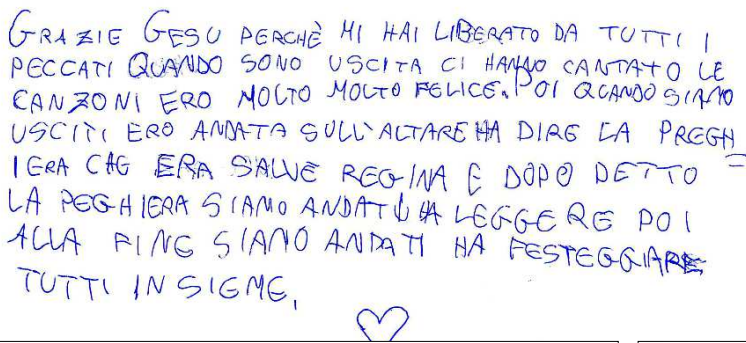 GRAZIE GESU PERCHÈ MI HAI LIBERATO DA TUTTI I
PECCATI QUANDO SONO USCITA CI HANNO CANTATO LE
CANZONI ERO MOLTO MOLTO FELICE. POI QUANDO SIAMO
USCITI ERO ANDATA SULL'ALTARE HA DIRE LA PREGH
IERA CHE ERA SALVE REGINA E DOPO DETTO =
LA PEGHIERA SIAMO ANDATI HA LEGGERE POI
ALLA FINE SIAMO ANDATI HA FESTEGGIARE
TUTTI INSIEME,